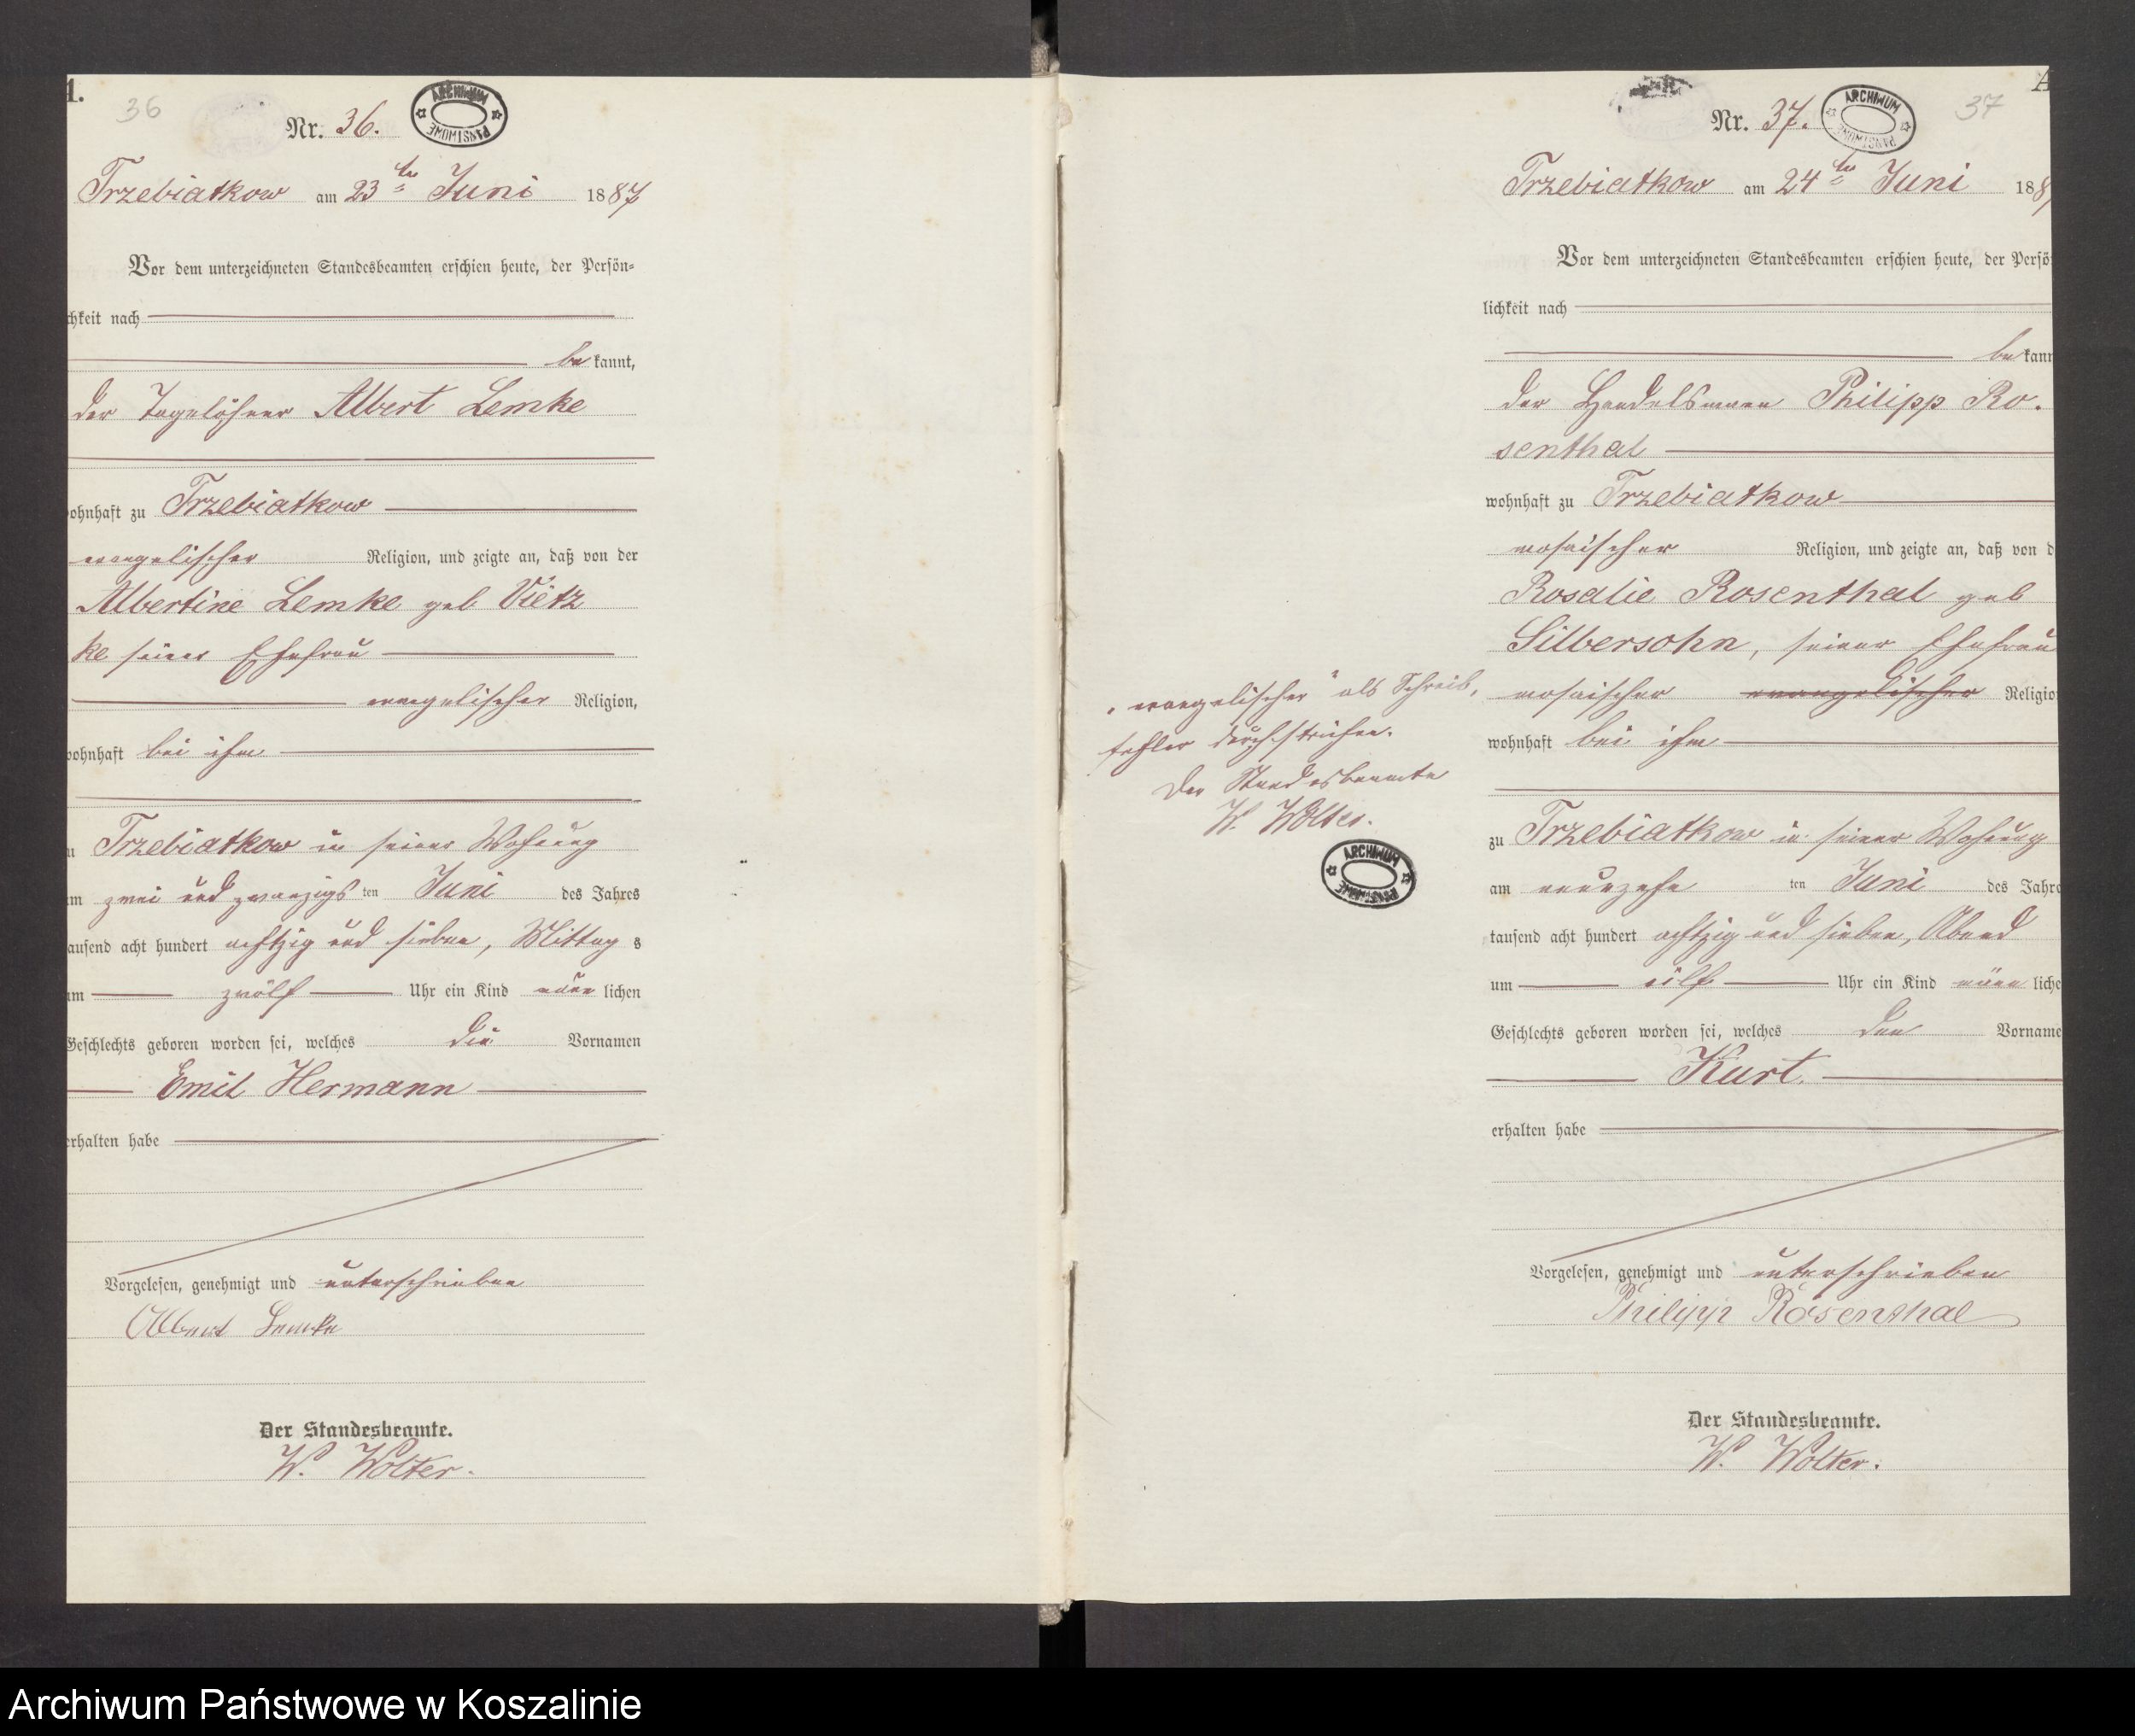 1.
36
Nr. 36.
ARCHIWUM PAŃSTWOWE
Trzebiatkow am 23ten Juni 1887
Vor dem unterzeichneten Standesbeamten erschien heute, der Persön-
chkeit nach
be kannt,
der Tagelöhner Albert Lemke
ohnhaft zu Trzebiatkow
evangelischer Religion, und zeigte an, daß von der
Albertine Lemke geb Vietz
ke seiner Ehefrau
evangelischer Religion,
wohnhaft bei ihm
u Trzebiatkow in seiner Wohnung
am zwei und zwanzigs ten Juni des Jahres
tausend acht hundert achtzig und sieben, Mittag s
um zwölf Uhr ein Kind männ lichen
Geschlechts geboren worden sei, welches die Vornamen
Emil Hermann
erhalten habe
Vorgelesen, genehmigt und unterschrieben
Albert Lemke
Der Standesbeamte.
W. Wolter.
A
37
Nr. 37.
ARCHIWUM PAŃSTWOWE
Trzebiatkow am 24ten Juni 188
Vor dem unterzeichneten Standesbeamten erschien heute, der Persö
lichkeit nach
be kann
der Handelsmann Philipp Ro.
senthal
wohnhaft zu Trzebiatkow
mosaischer Religion, und zeigte an, daß von d
Rosalie Rosenthal geb
Silbersohn, seiner Ehefrau
mosaischer evangelischer Religio
wohnhaft bei ihm
zu Trzebiatkow in seiner Wohnung
am neunzehn ten Juni des Jahre
tausend acht hundert achtzig und sieben, Abend
um eilf Uhr ein Kind männ liche
Geschlechts geboren worden sei, welches den Vorname
Kurt.
erhalten habe
Vorgelesen, genehmigt und unterschrieben
Philipp Rosenthal
Der Standesbeamte.
W. Wolter.
„evangelischer" als Schreib,
fehler durchstrichen.
Der Standesbeamte
W. Wolter.
ARCHIWUM PAŃSTWOWE
Archiwum Państwowe w Koszalinie